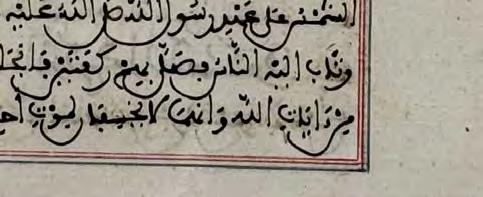 الشمس على عهد رسول الله صلى الله عليه
وثاب اليه الناس فصلى بهم ركعتين فانجلا
من ءايات الله وانهما لا يخسفان لموت اح